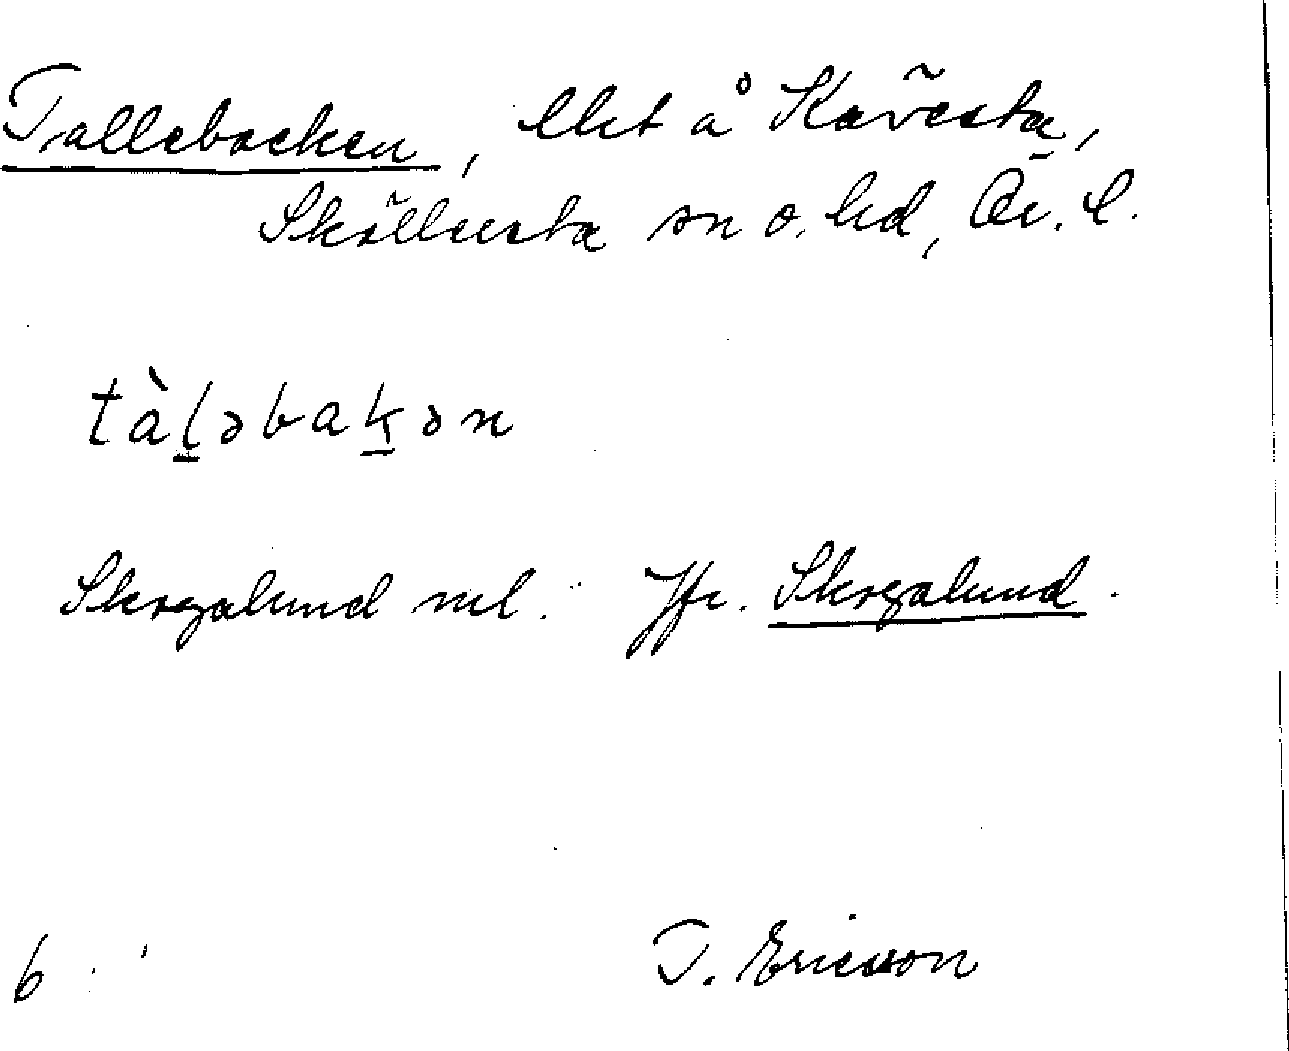 Tallebacken, lht å Kävesta,
Sköllersta sn o. hd, Ör. l.
tàl̠əbak̠ən
Skogalund nml. Jfr. Skogalund.
6
T. Ericsson